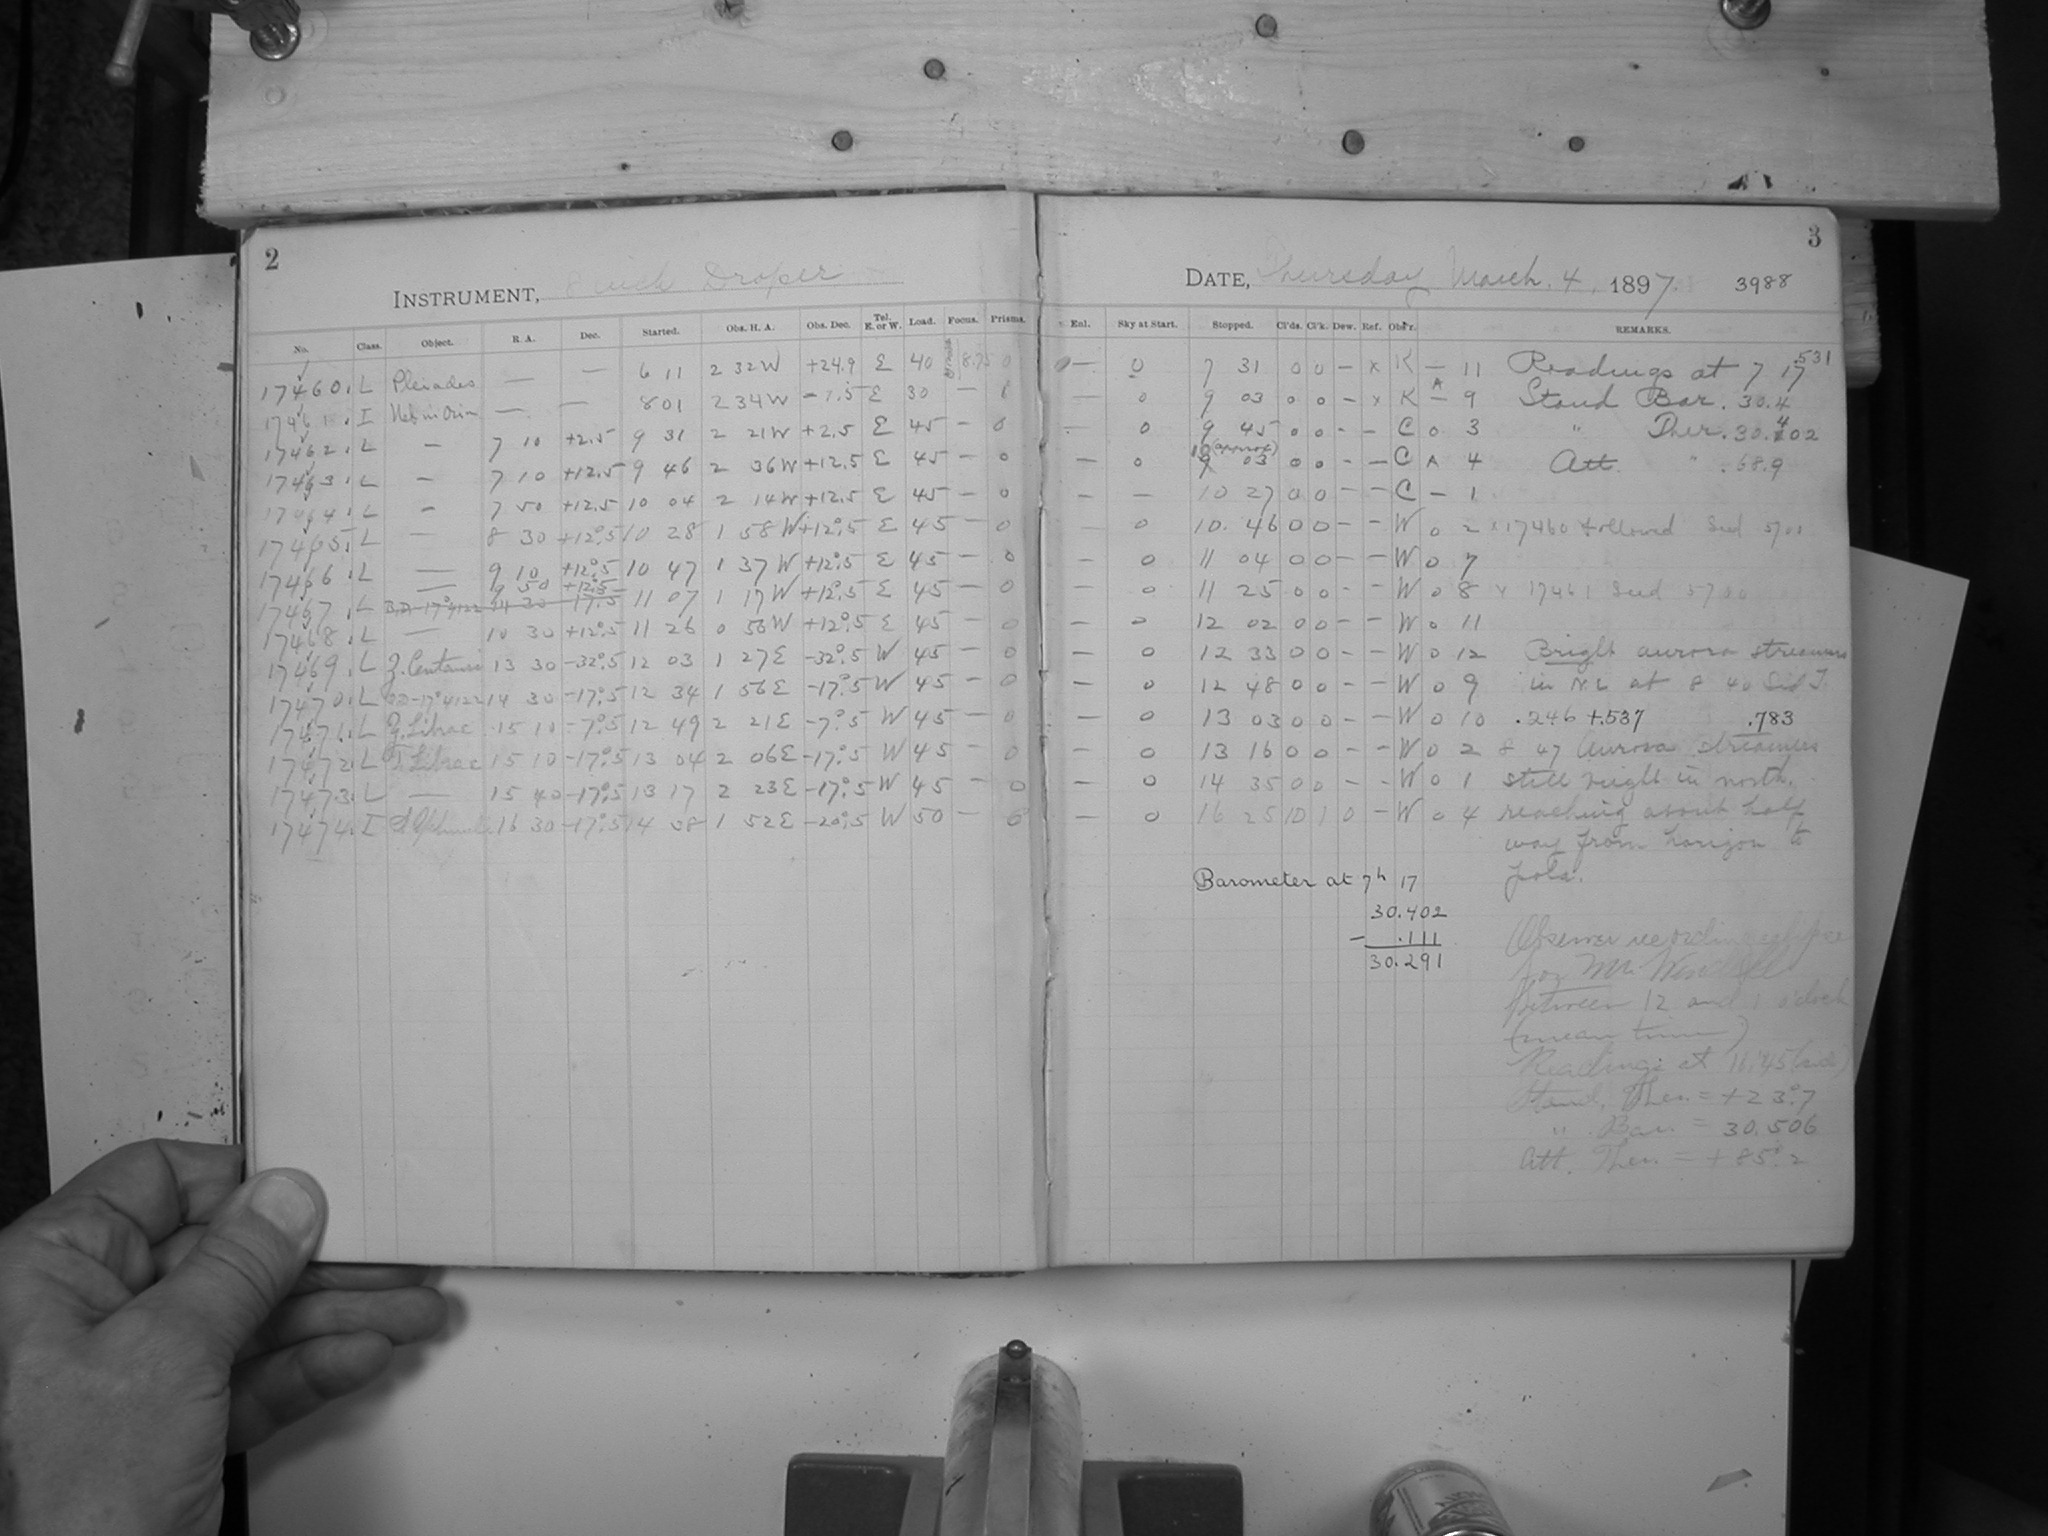 2
INSTRUMENT, 8 inch Draper
No. Class. Object. R. A. Dec. Started. Obs. H. A. Obs. Dec. Tel. E. or W. Load. Focus. Prisms.
17460. L Pleiades — — 6 11 2 32 W +24.9 E 40 8.75 0
17461. I Neb in Orin — — 8 01 2 34 W -7.5 E 30 —
17462. L — 7 10 +2.5 9 31 2 21 W +2.5 E 45 — 0
17463. L — 7 10 +12.5 9 46 2 36 W +12.5 E 45 — 0
17464. L — 7 50 +12.5 10 04 2 14 W +12.5 E 45 — 0
17465. L — 8 30 +12°.5 10 28 1 58 W +12°.5 E 45 — 0
17466. L — 9 10 +12°.5 10 47 1 37 W +12°.5 E 45 — 0
— 9 50 +12.5
17467. L B.D. -17°4122 14 30 -17.5 11 07 1 17 W +12°.5 E 45 — 0
17468. L — 10 30 +12°.5 11 26 0 56 W +12°.5 E 45 — 0
17469. L Centauri 13 30 -32°.5 12 03 1 27 E -32°.5 W 45 — 0
17470. L B.D. -17°4122 14 30 -17°.5 12 34 1 56 E -17°.5 W 45 — 0
17471. L Librae 15 10 -7°.5 12 49 2 21 E -7°.5 W 45 — 0
17472. L Librae 15 10 -17°.5 13 04 2 06 E -17°.5 W 45 — 0
17473. L — 15 40 -17°.5 13 17 2 23 E -17°.5 W 45 — 0
17474. I 16 30 -17°.5 14 08 1 52 E -20°.5 W 50 — 0
3
DATE, Thursday March. 4, 1897. 3988
Enl. Sky at Start. Stopped. Cl'ds. Cl'k. Dew. Ref. Obs'r. REMARKS.
— 0 7 31 0 0 — x K — 11 Readings at 7 17 .531
— 0 9 03 0 0 — x K A — 9 Stand Bar. 30.4
— 0 9 45 0 0 — — C 0 3 " Ther. 30.402
10 (approx)
— 0 9 03 0 0 — — C A 4 Att. " .68.9
— — 10 27 0 0 — — C — 1
— 0 10. 46 0 0 — — W 0 2 x 17460 followed Seed 5700
— 0 11 04 0 0 — — W 0 7
— 0 11 25 0 0 — — W 0 8 x 17461 Seed
— 0 12 02 0 0 — — W 0 11
— 0 12 33 0 0 — — W 0 12 Bright aurora streamers
— 0 12 48 0 0 — — W 0 9 in N.E. at 8 40 Sid T.
— 0 13 03 0 0 — — W 0 10 .246 +.537 .783
— 0 13 16 0 0 — — W 0 2 8 47 Aurora streamers
— 0 14 35 0 0 — — W 0 1 still bright in north.
— 0 16 25 10 1 0 — W 0 4 reaching about half
way from horizon to
pole.
Barometer at 7h 17
30.402
- .111
30.291
Observer recording eclipse
for Mr. Wendell
between 12 and 1 o'clock
(mean time)
Readings at 11.45 (sid)
Stand. Ther. = +23°.7
" Bar. = 30.506
Att. Ther. = +85°.2